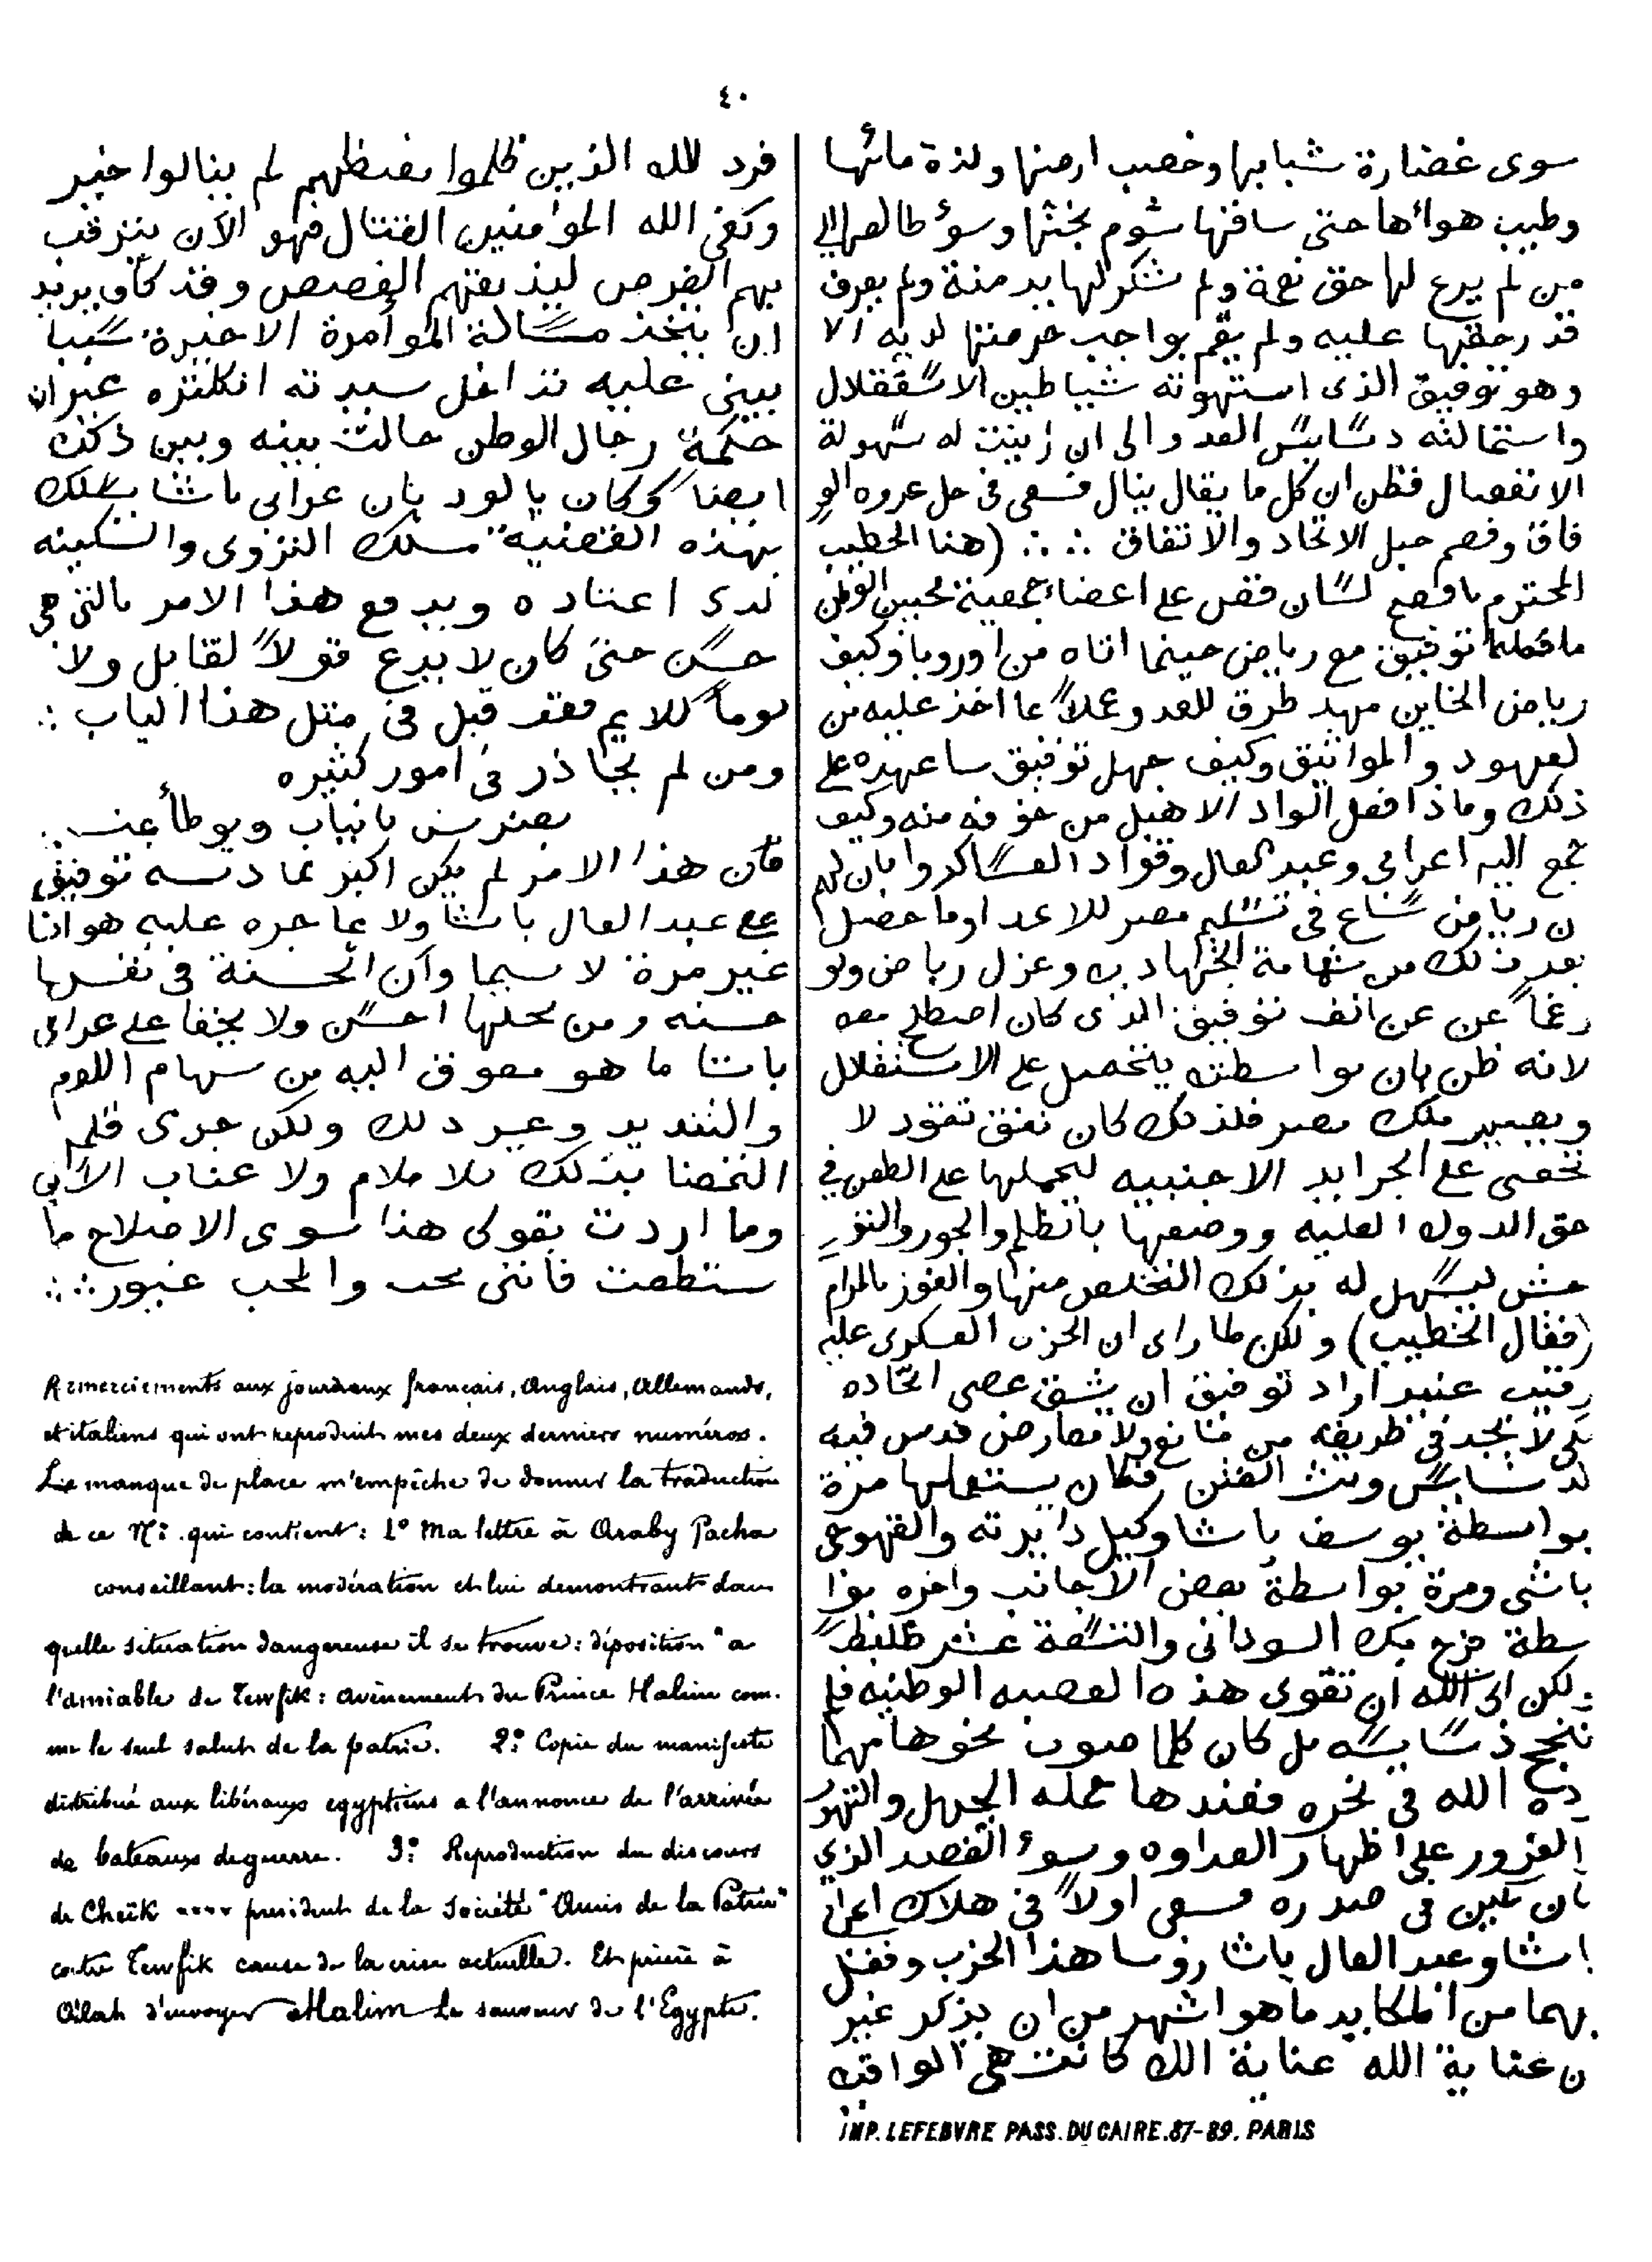 ٤٠
سوى غضارة شبابها وخصب ارضها ولذة مائها
وطيب هوائها حتى ساقها شوم بختها وسوء طالعها الي
من لم يرع لها حق نعمة ولم يشكر لها يد منة ولم يعرف
قدر حقها عليه ولم يقم بواجب حرمتها لديه الا
وهو توفيق الذى استهوته شياطين الاستقلال
واستمالته دسايس العدو الى ان زينت له سهولة
الانفصال فظن ان كل ما يقال ينال فسعى فى حل عروه الو
فاق وفصم حبل الاتحاد والاتفاق ∴ ∴ (هنا الخطيب
المحترم بافصح لسان قص على اعضاء جمعية محبين الوطن
ما فعله توفيق مع رياض حينما اتاه من اوروبا وكيف
رياض الخاين مهد طرق للعدو عملاً بما اخذ عليه من
لعهود والمواثيق وكيف جهل توفيق ساعده على
ذلك وماذا فعل الواد الاهبل من خوفه منه وكيف
جمع اليه اعرابى وعبد العال وقواد العساكر وابان لهم
ن رياض ساع فى تسليم مصر للاعدا وما حصل
بعد ذلك من شهامة الجهاديه وعزل رياض ولو
رغماً عن عن انف توفيق الذى كان اصطلح معه
لانه ظن بان بواسطته يتحصل على الاستقلال
ويصير ملك مصر فلذلك كان نفق نقود لا
تحصى على الجرايد الاجنبيه ليحملها على الطعن في
حق الدوله العليه ووصفها بالظلم والجور والتو
حش ليسهل له بذلك التخلص منها والفوز بالمرام
(فقال الخطيب) ولكن لما راى ان الحزب العسكرى عليه
رقيب عنيد اراد توفيق ان يشق عصى اتحاده
لكى لا يجد فى طريقه من مانع ولا معارض فدس فيه
لدسايس وبث الفتن فكان يستعملها مرة
بواسطة يوسف باشا وكيل دايرته والقهوجى
باشى ومرة بواسطة بعض الاجانب واخره بوا
سطة فرج بك السودانى والتسعة عشر ظابط
ولكن ابى الله ان تقوى هذه العصبه الوطنيه فلم
تنجح دسايسه بل كان كلما صوب نحوها سهما
رده الله فى نحره فعندها حمله الجهل والتهو
الغرور على اظهار العداوه وسوء القصد الزي
كان كمين فى صدره فسعى اولاً فى هلاك اعرابى
باشا وعبد العال باشا روسا هذا الحزب وفعل
بهما من المكايد ما هو اشهر من ان يذكر غير
ن عناية الله عناية الله كانت هى الواقيه
IMP. LEFEBVRE PASS. DU CAIRE. 87-89. PARIS
فرد الله الذين ظلموا بغيظهم لم ينالوا خير
وكفى الله المؤمنين القتال فهو الآن يترقب
بهم الفرص ليذيقهم الغصص وقد كان يريد
ان يتخذ مسالة الموآمرة الاخيرة سببا
يبنى عليه تداخل سيدته انكلتره غير ان
حكمة رجال الوطن حالت بينه وبين ذلك
ايضا وكان بالود بان عرابى باشا يسلك
بهذه القضية مسلك التروى والسكينه
لذى اعتاده ويدفع هذا الامر بالتى هى
حسن حتى كان لا يدع قولاً لقايل ولا
لوماً للايم فقد قيل فى مثل هذا الباب ∴
ومن لم يحاذر فى امور كثيره
يضرس بانياب ويوطأ بمنسم ∴
فان هذا الامر لم يكن اكبر مما دسه توفيق
على عبد العال باشا ولا مما جره عليه هو اذا
غير مرة لا سيما وان الحسنة فى نفسها
حسنه ومن محلها احسن ولا يخفا على عرابى
باشا ما هو مصوق اليه من سهام اللوم
والتنديد وغير ذلك ولكن جرى قلم
القضا بذلك بلا ملام ولا عتاب الآن
وما اردت بقولى هذا سوى الاصلاح ما
ستطعت فاننى محب والمحب غيور ∴ ∴
Remerciements aux journaux français, Anglais, Allemands,
et italiens qui ont reproduit mes deux derniers numéros.
Le manque de place m'empêche de donner la traduction
de ce Nº. qui contient: 1º Ma lettre à Araby Pacha
conseillant: la modération et lui demontrant dans
quelle situation dangereuse il se trouve: déposition "a
l'amiable de Tewfik: avènement du Prince Halim com-
me le seul salut de la patrie. 2º: Copie du manifeste
distribué aux libéraux egyptiens a l'annonce de l'arrivée
de bateaux de guerre. 3º: Reproduction du discours
de Cheïk **** president de la Société "Amis de la Patrie"
contre Tewfik cause de la crise actuelle. Et prière à
Allah d'envoyer Halim le sauveur de l'Egypte.